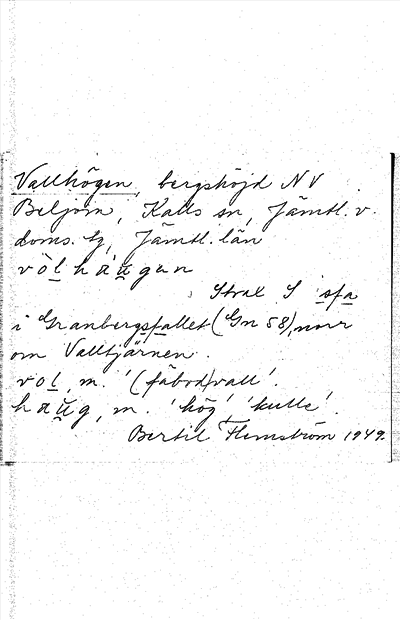 Vallhögen, bergshöjd NV
Beljom, Kalls sn, Jämtl. v.
doms. tg, Jämtl. län
vòl hàu̯gen
Strax S sfa
i Granbergsfallet (Gn 58), norr
om Valltjärnen.
vol, m. '(fäbod)vall'.
hau̯g, m. 'hög', 'kulle'.
Bertil Flemström 1949.